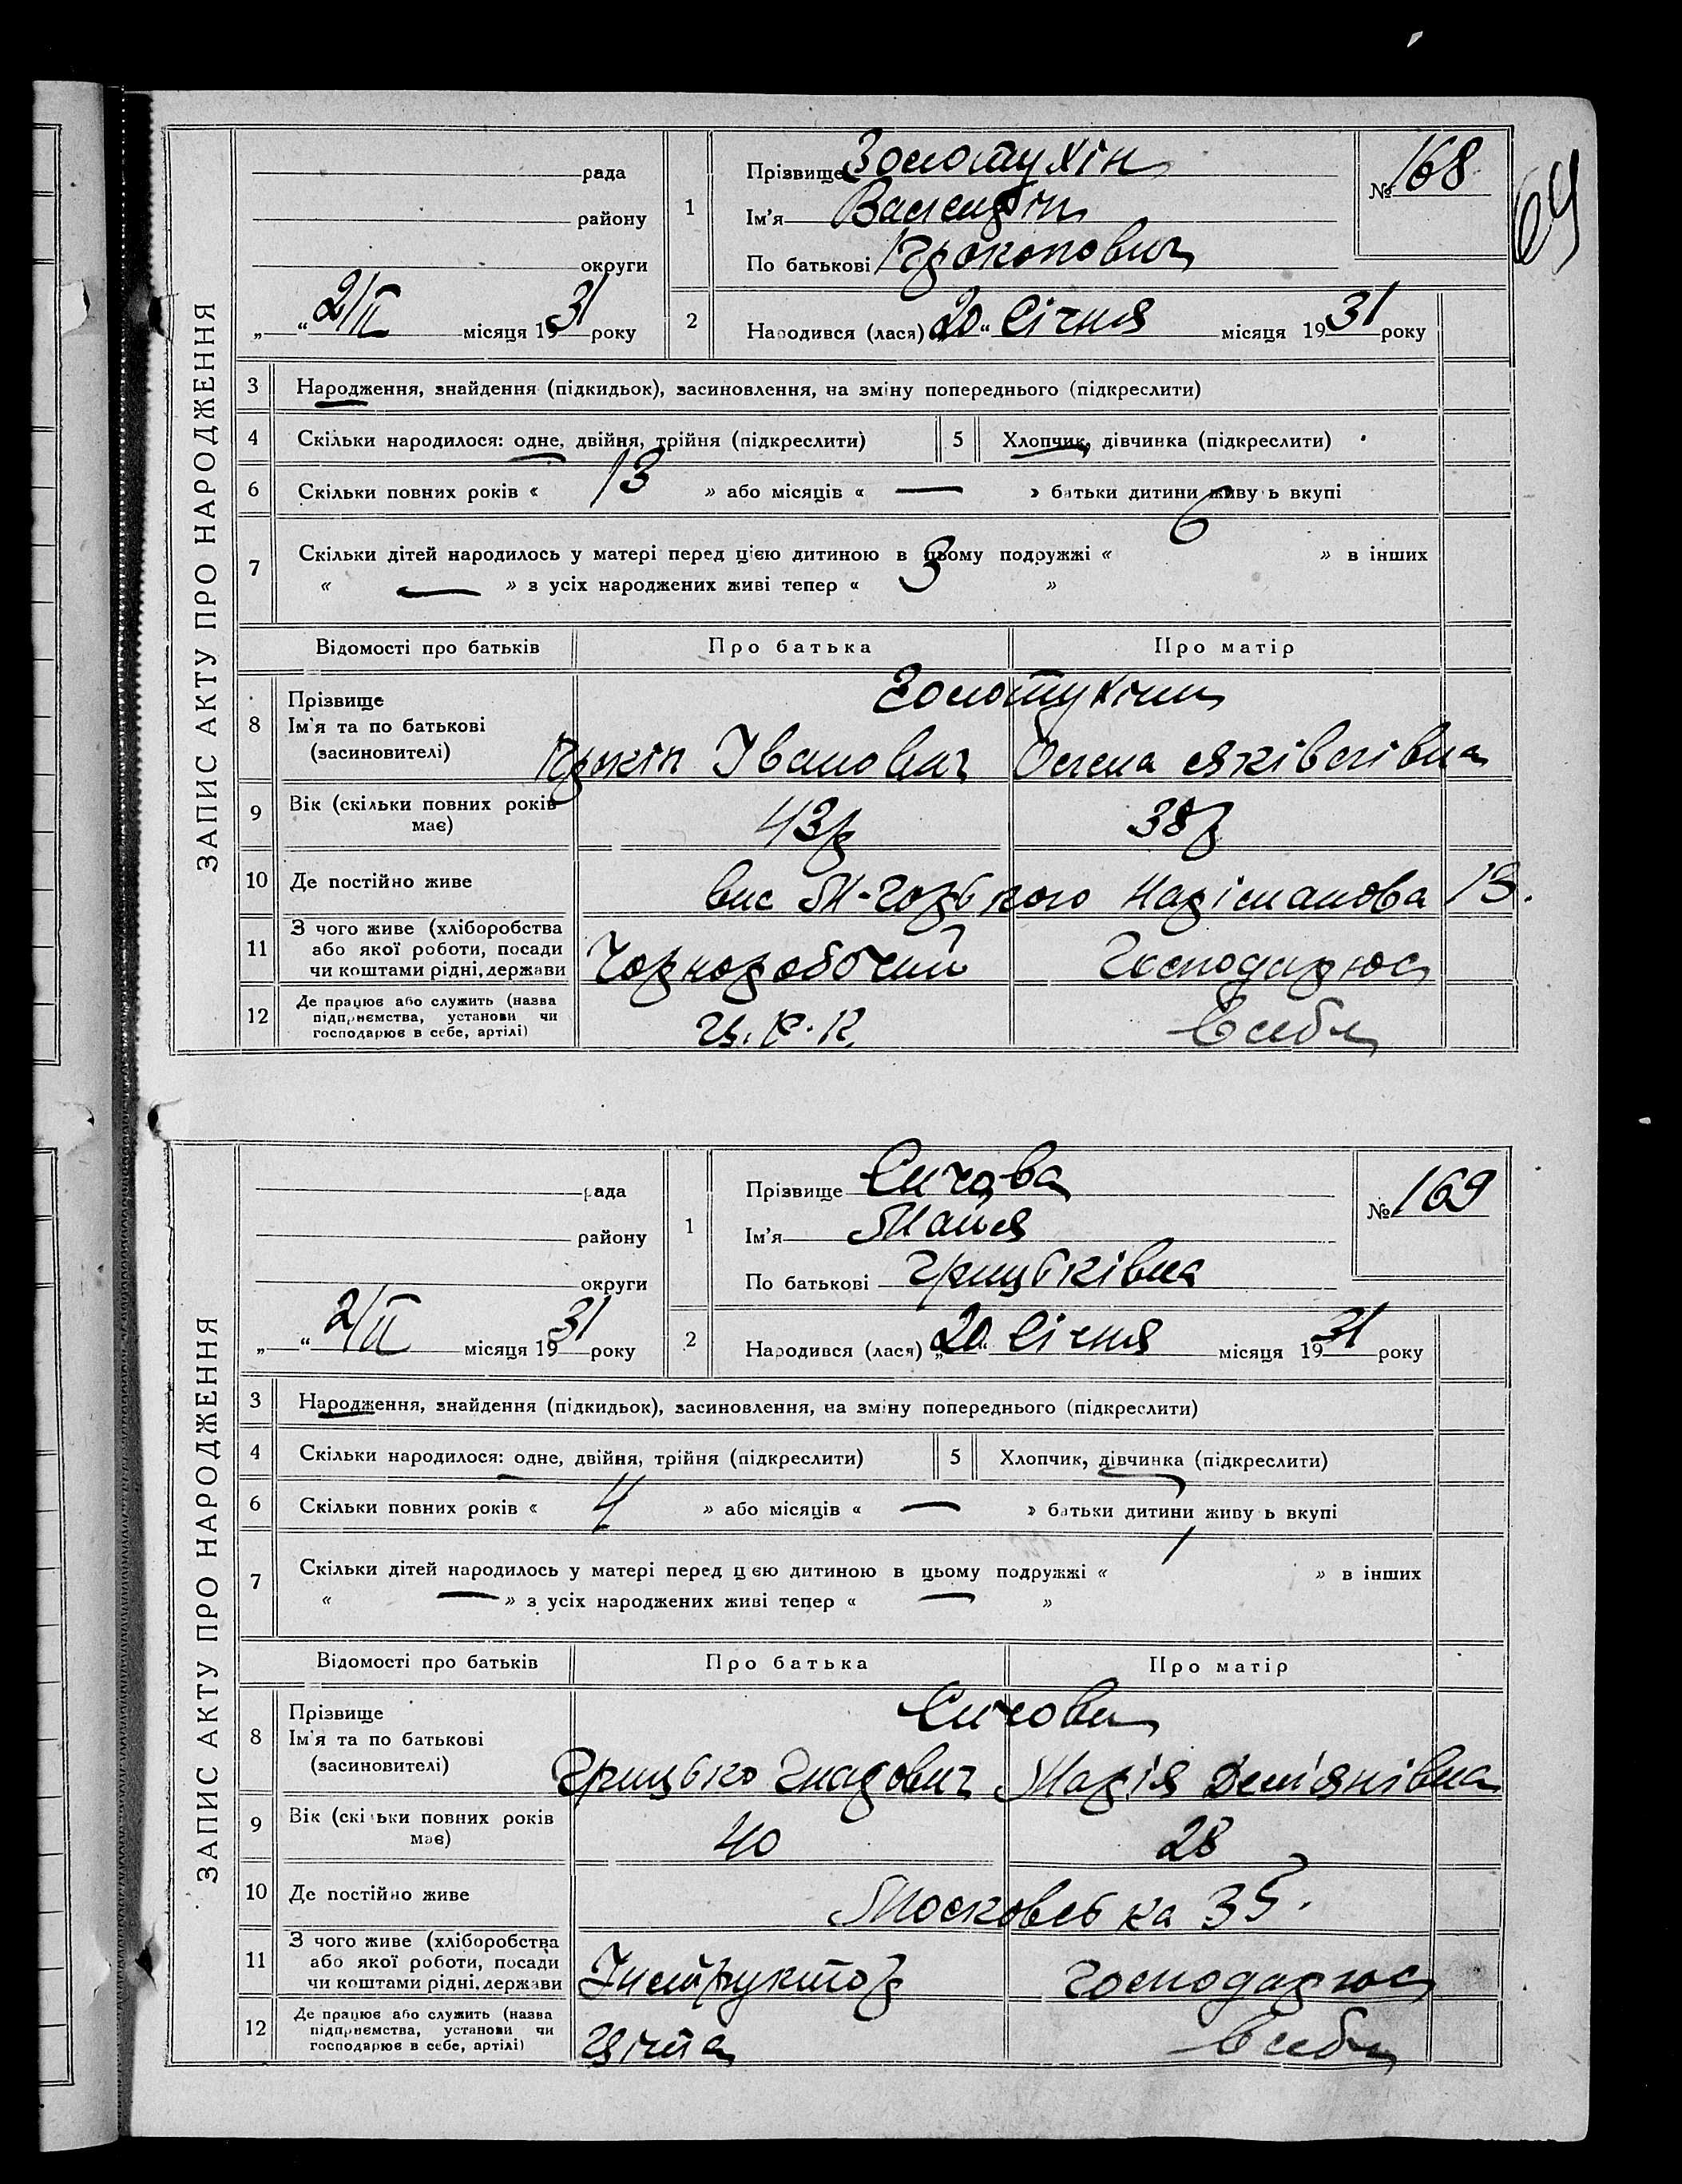 ЗАПИС АКТУ ПРО НАРОДЖЕННЯ
рада
району
округи
„ “ 2/ІІ місяця 1931 року
1 Прізвище Золотухін
Ім'я Валентін
По батькові Прокопович
№ 168
64
2 Народився (лася) „20“ Січня місяця 1931 року
3 Народження, знайдення (підкидьок), засиновлення, на зміну попереднього (підкреслити)
4 Скільки народилося: одне, двійня, трійня (підкреслити) 5 Хлопчик, дівчинка (підкреслити)
6 Скільки повних років « 13 » або місяців « — » батьки дитини живуть вкупі
7 Скільки дітей народилось у матері перед цією дитиною в цьому подружжі « 6 » в інших
« — » з усіх народжених живі тепер « 3 »
Відомості про батьків Про батька Про матір
8 Прізвище Золотухіни
Ім'я та по батькові
(засиновителі) Прокіп Іванович Олена Яківлівна
9 Вік (скільки повних років має) 43р 38р
10 Де постійно живе вис М-Горького Наріманова 13.
11 З чого живе (хліборобства або якої роботи, посади чи коштами рідні, держави Чорноробочий Господарює
12 Де працює або служить (назва підприємства, установи чи господарює в себе, артілі) Ц.Р.К. В себе
ЗАПИС АКТУ ПРО НАРОДЖЕННЯ
рада
району
округи
„ “ 2/ІІ місяця 1931 року
1 Прізвище Сичова
Ім'я Майя
По батькові Грицьківна
№ 169
2 Народився (лася) „20“ Січня місяця 1931 року
3 Народження, знайдення (підкидьок), засиновлення, на зміну попереднього (підкреслити)
4 Скільки народилося: одне, двійня, трійня (підкреслити) 5 Хлопчик, дівчинка (підкреслити)
6 Скільки повних років « 4 » або місяців « — » батьки дитини живуть вкупі
7 Скільки дітей народилось у матері перед цією дитиною в цьому подружжі « 1 » в інших
« — » з усіх народжених живі тепер « — »
Відомості про батьків Про батька Про матір
8 Прізвище Сичови
Ім'я та по батькові
(засиновителі) Грицько Марія Дем'янівна
9 Вік (скільки повних років має) 40 28
10 Де постійно живе Московська 35.
11 З чого живе (хліборобства або якої роботи, посади чи коштами рідні, держави Інструктор господарює
12 Де працює або служить (назва підприємства, установи чи господарює в себе, артілі) В себе